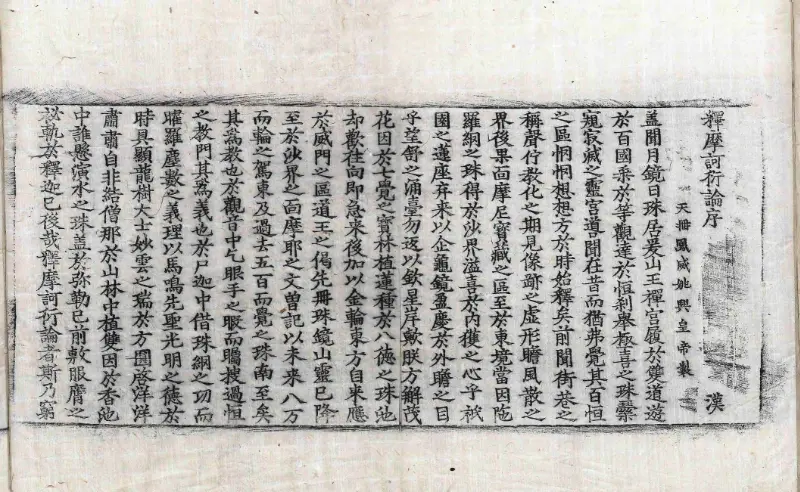 釋摩訶衍論序 漢
天冊鳳威姚興皇帝製
盖聞月鏡日珠居山王禪宮履於雙道遊
於百國乘於羊觀達於恒刹舉極喜之珠纍
窺寂滅之靈宮遵聞在昔而猶弗覺其百恒
之區惘惘想想方於時始釋矣前聞街巷之
稱聲佇教化之期見像跡之虛形瞻風散之
界後果而摩尼寶藏之區至於東境當因陁
羅網之珠得於沙界溢喜於内獲之心乎祇
園之蓮座弃来以企龜鏡盈慶於外瞻之目
乎望舒之涌臺勿返以欽星岸歟朕方辦茂
花因於七覺之寶林植蓮種於八德之珠池
却歡往向即急来後加以金輪東方自来應
於威門之區道王之偈先冊珠鏡山靈已降
至於沙界之面摩耶之文曽記以未来八万
而輪之駕東及過去五百而覺之珠南至矣
其爲教也於觀音中乞眼手之暇而矚搜過恒
之教門其爲義也於尸迦中借珠網之功而
曜羅塵數之義理以馬鳴先聖光明之德於
時具顯龍樹大士妙雲之瑞於方圓啓洋洋
肅肅自非結僧那於山林中植雙因於香池
中誰懸演水之珠盖於弥勒已前敷服膺之
秘軌於釋迦已後哉釋摩訶衍論者斯乃窮